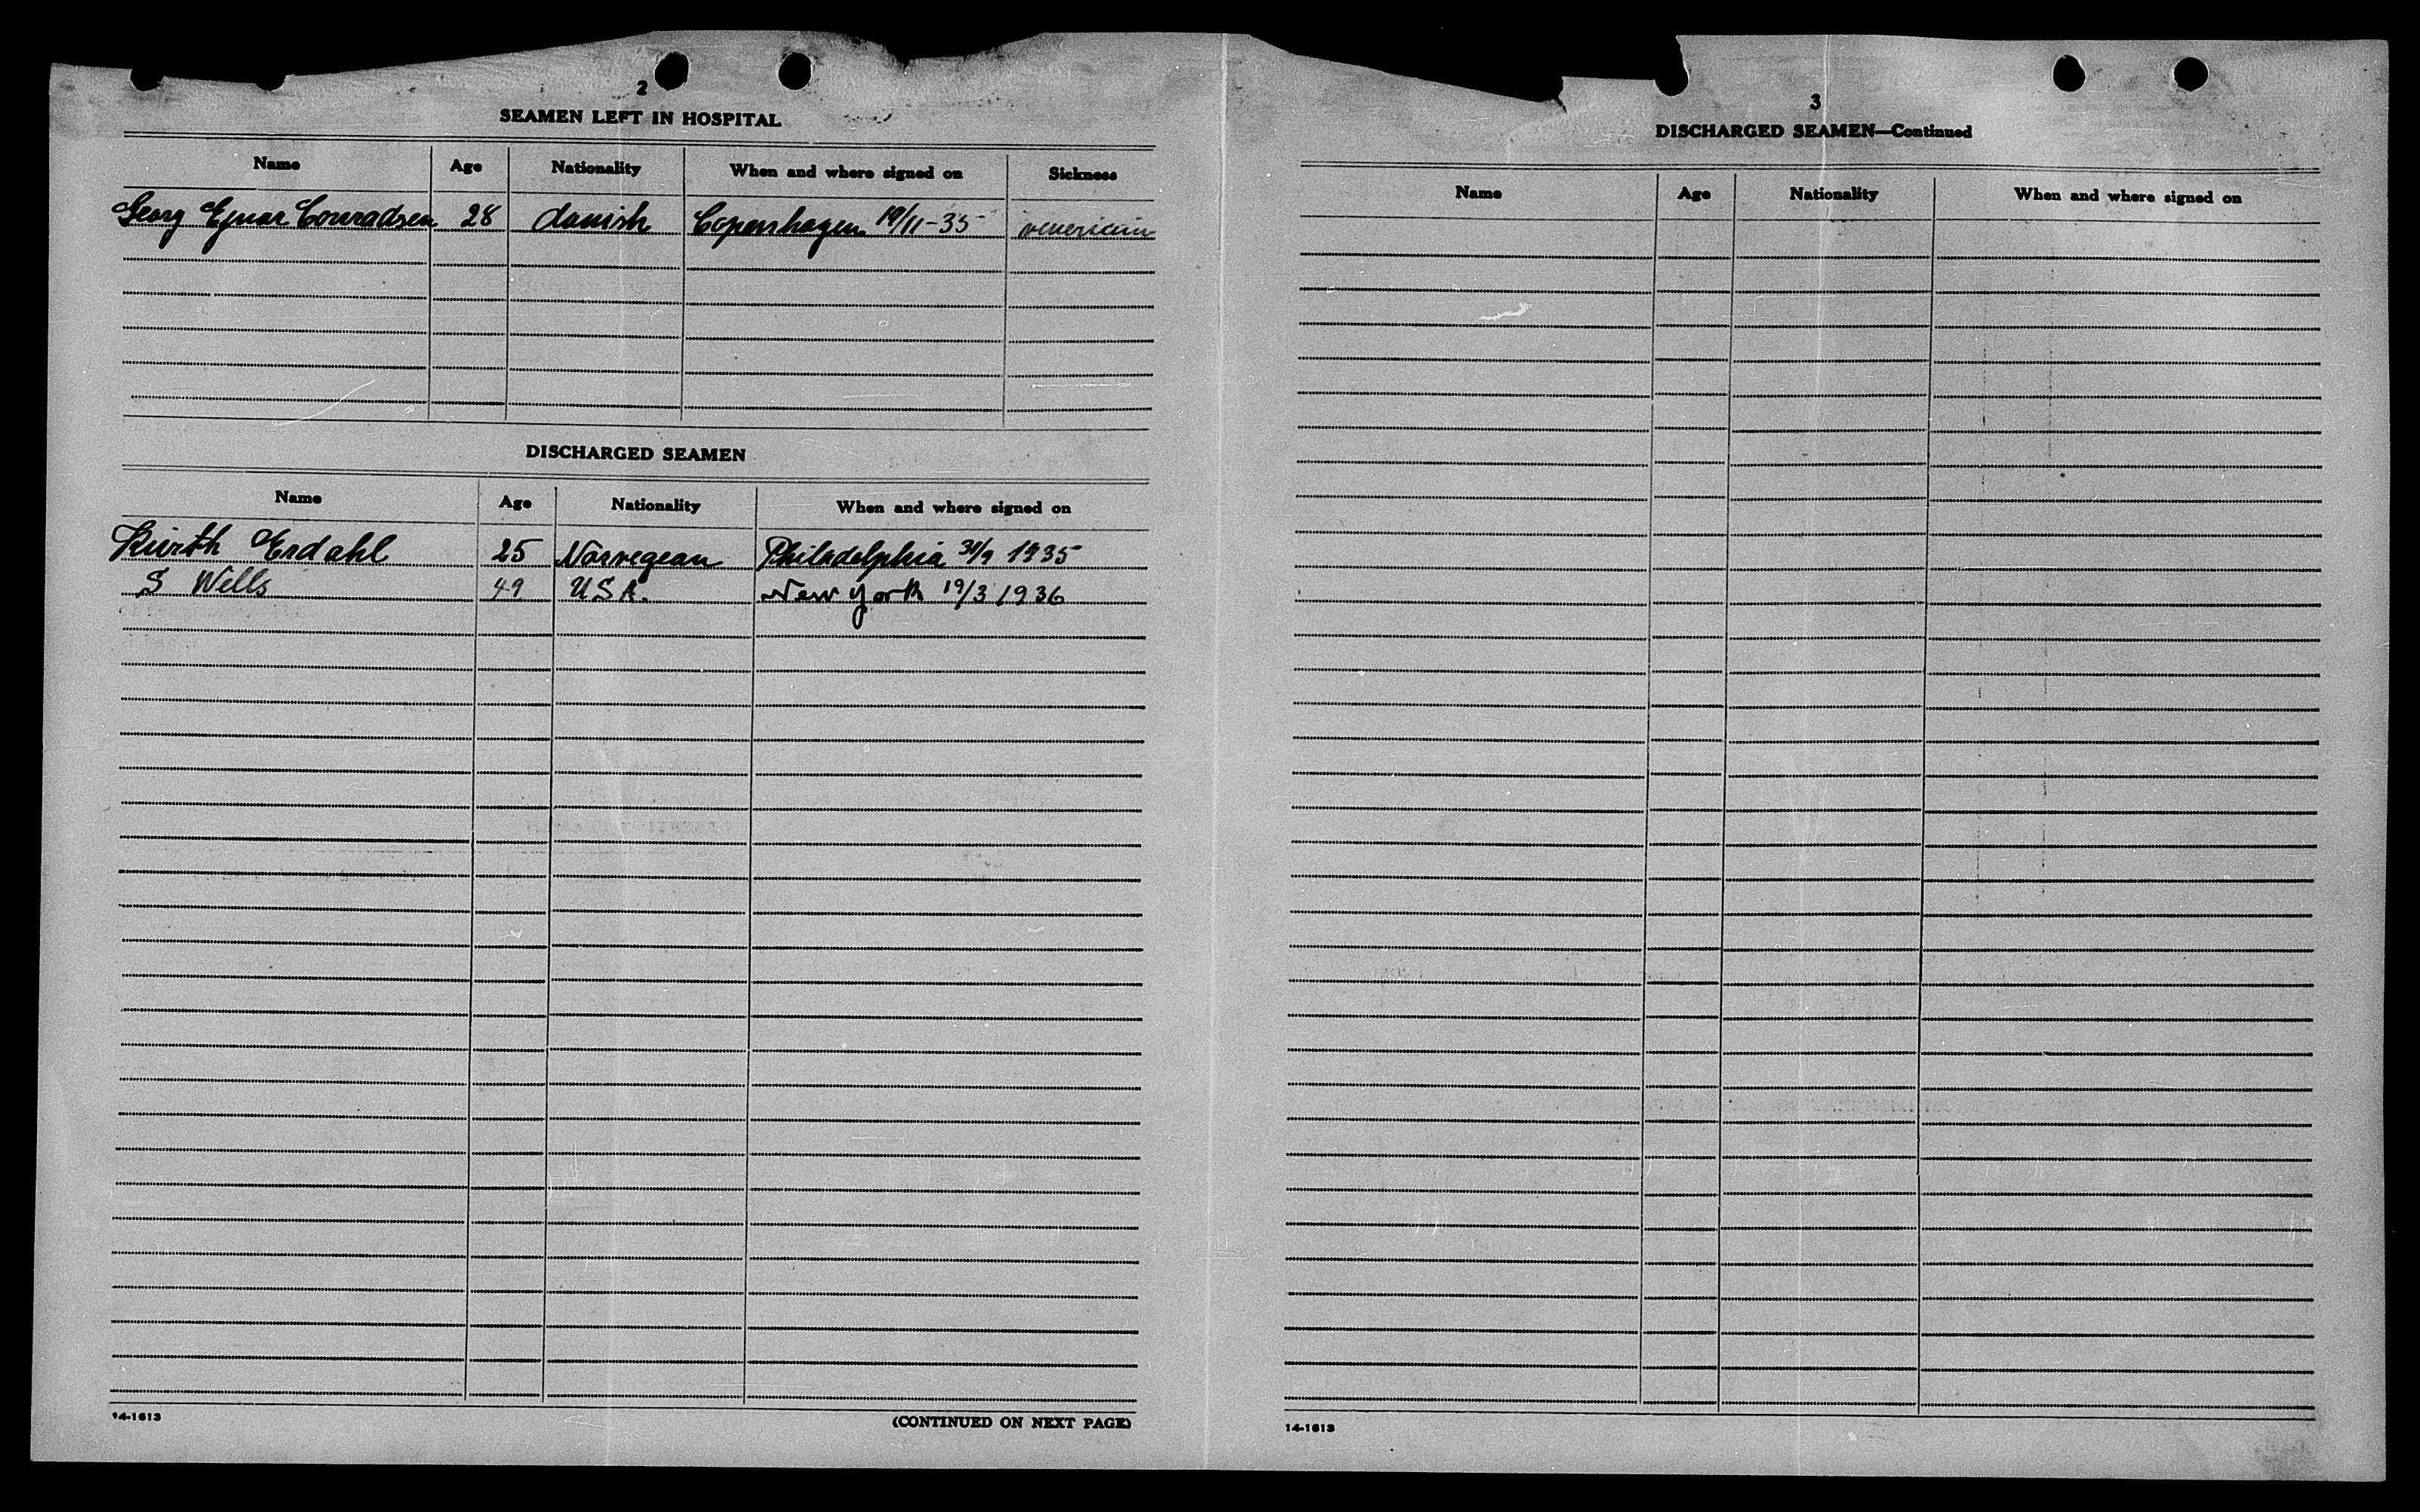 2
SEAMEN LEFT IN HOSPITAL
Name Age Nationality When and where signed on Sickness
Georg Ejnar Conradsen 28 danish Copenhagen 19/11-35 venericum
DISCHARGED SEAMEN
Name Age Nationality When and where signed on
Kurth Erdahl 25 Norvegean Philadelphia 1935
S Wells 49 U.S.A. New York 19/3 1936
14-1613
(CONTINUED ON NEXT PAGE)
3
DISCHARGED SEAMEN—Continued
Name Age Nationality When and where signed on
14-1613